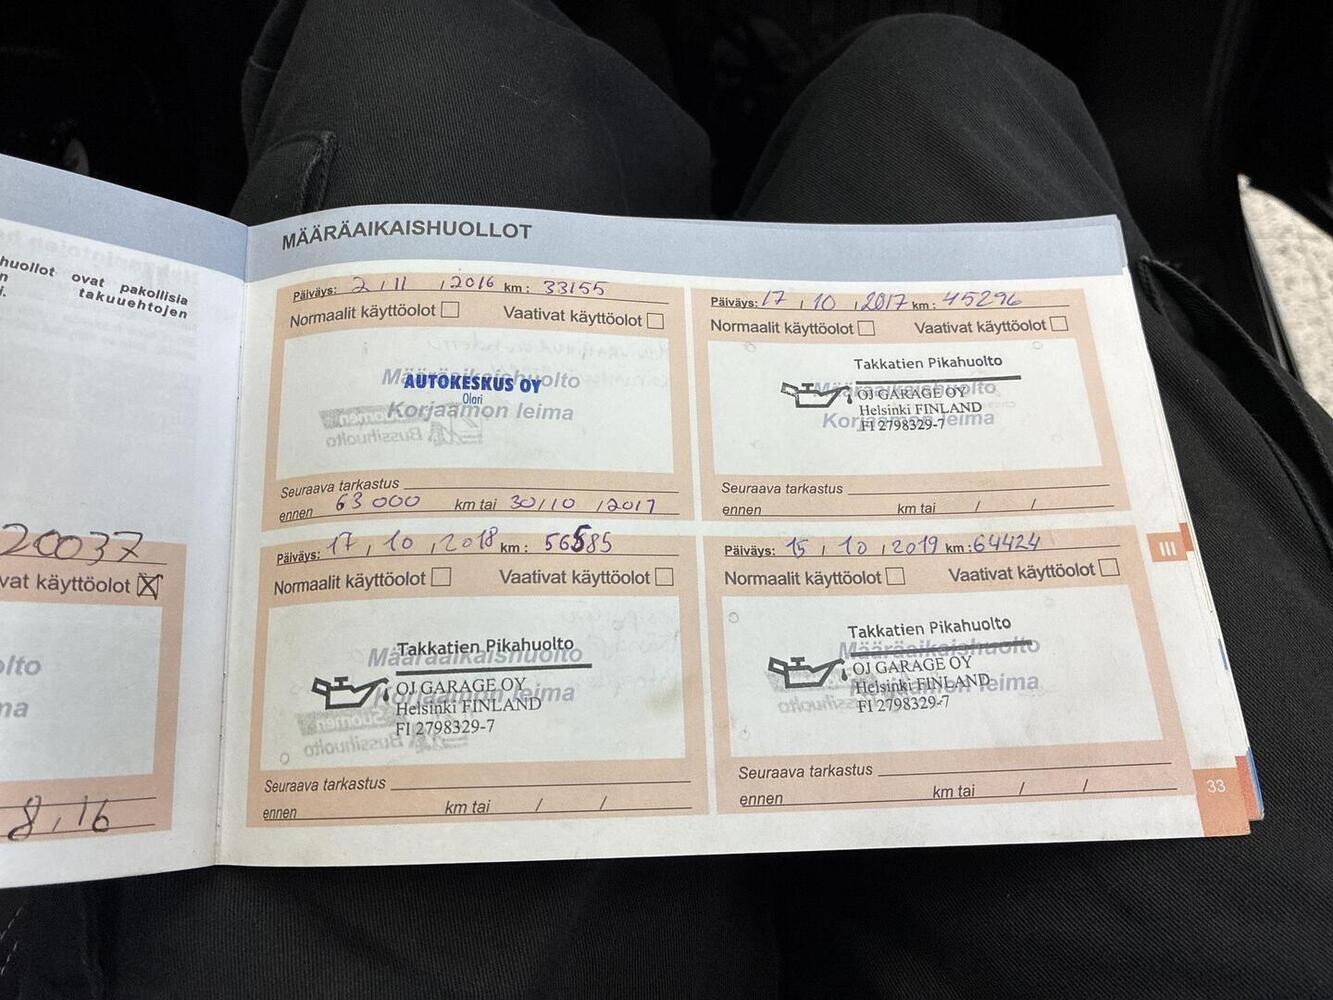 huollot ovat pakollisia
n takuuehtojen
20037
vat käyttöolot
olto
na
8,16
MÄÄRÄAIKAISHUOLLOT
Päiväys: 2 / 11 , 2016 km: 33155
Normaalit käyttöolot Vaativat käyttöolot
Määräaikaishuolto
AUTOKESKUS OY
Olari
Korjaamon leima
Seuraava tarkastus
ennen 63 000 km tai 30/10 /2017
Päiväys: 17 , 10 , 2017 km: 45296
Normaalit käyttöolot Vaativat käyttöolot
Takkatien Pikahuolto
Määräaikaishuolto
OJ GARAGE OY
Helsinki FINLAND
Korjaamon leima
FI 2798329-7
Seuraava tarkastus
ennen km tai / /
Päiväys: 17 , 10 , 2018 km: 56585
Normaalit käyttöolot Vaativat käyttöolot
Takkatien Pikahuolto
Määräaikaishuolto
OJ GARAGE OY
Korjaamon leima
Helsinki FINLAND
FI 2798329-7
Seuraava tarkastus
ennen km tai / /
Päiväys: 15 / 10 , 2019 km: 64424
Normaalit käyttöolot Vaativat käyttöolot
Takkatien Pikahuolto
Määräaikaishuolto
OJ GARAGE OY
Helsinki FINLAND
Korjaamon leima
FI 2798329-7
Seuraava tarkastus
ennen km tai / /
III
33